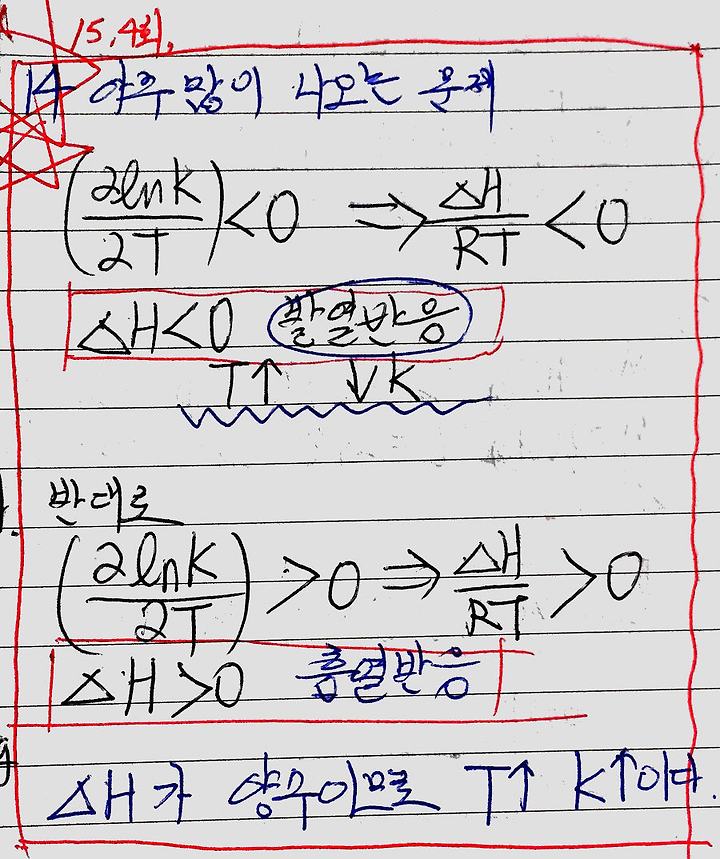 15, 4회,
14 아주 많이 나오는 문제
(∂lnK/∂T) < 0 ⇒ ΔH/RT < 0
ΔH<0 발열반응
T↑ ↓K
반대로
(∂lnK/∂T) > 0 ⇒ ΔH/RT > 0
ΔH>0 흡열반응
ΔH가 양수이므로 T↑ K↑이다.